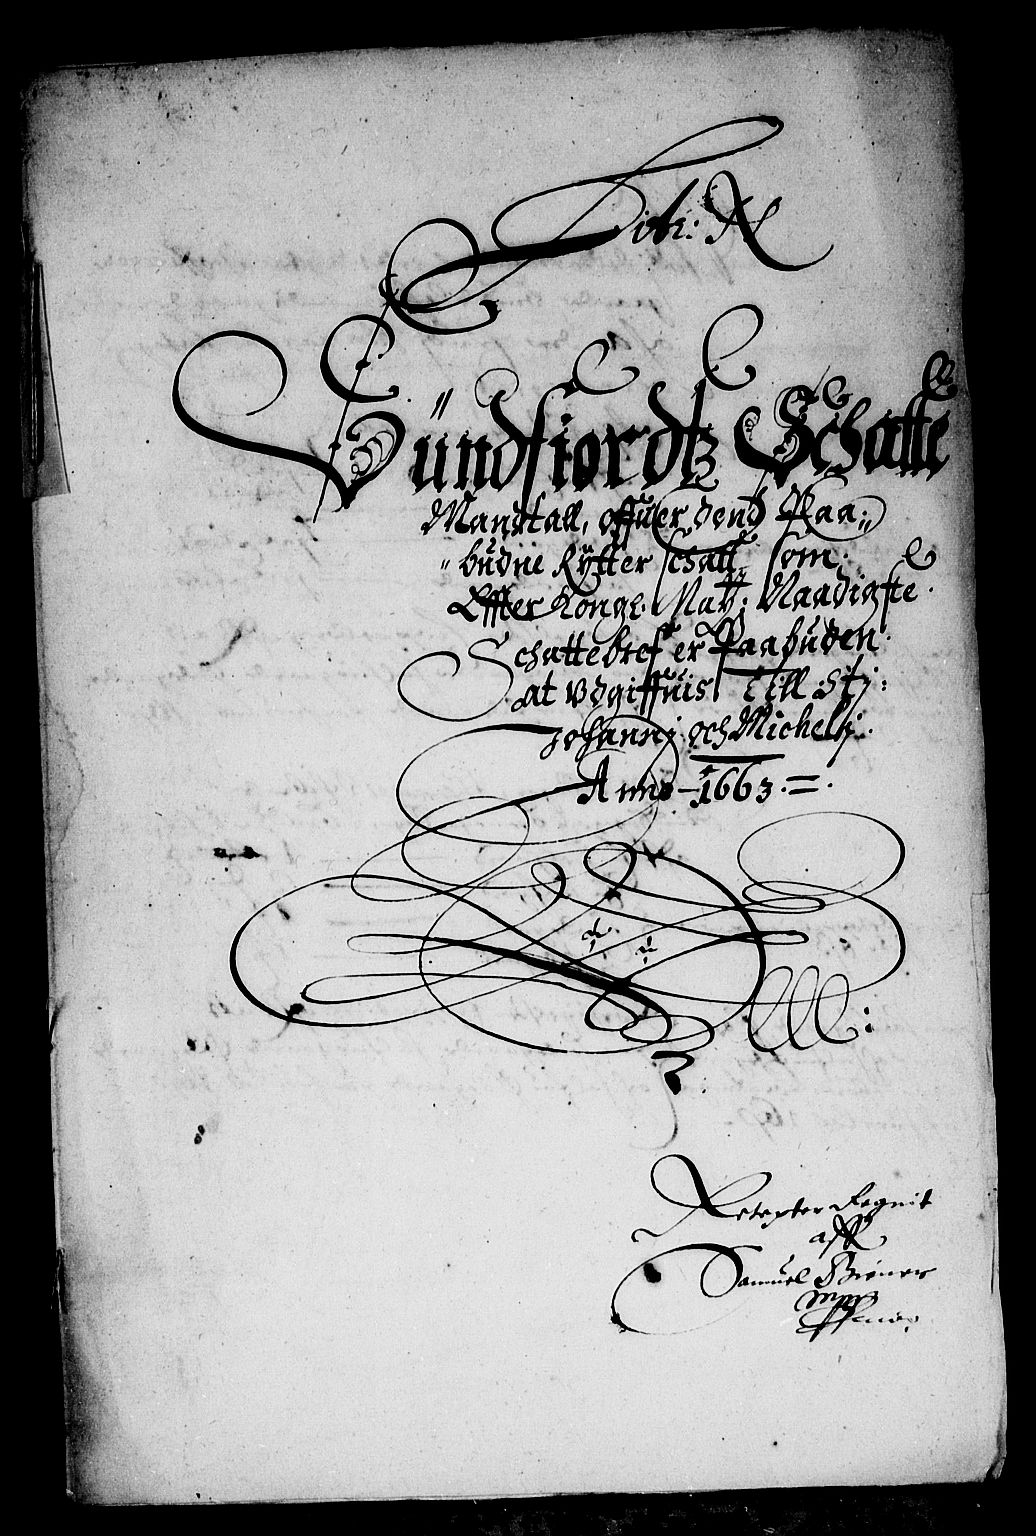 Litr: N
Sündfiordtz Schatte
Mandtall, offuer dend Paa„
„büdne Rÿtter schatt, som
Effter Kongl: Maÿ: Naadigste
Schattebref er Paabüden
at vdgiffuis Till Stj:
Johannj och Michelj.
Anno – 1663. =.
Samuel